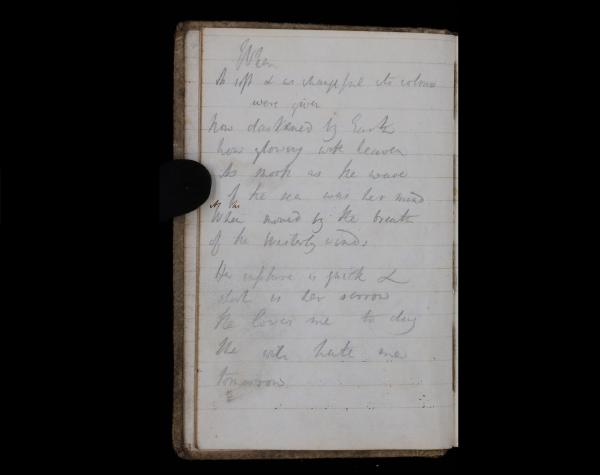 When
As soft & as changeful its colours
were given
Now darkened by Earth
Now glowing with heaven
As smooth as the wave
of the sea was her mind
When moved by the breath
of the Westerly winds
Her rapture is quick &
short is her sorrow
She loves me to day
She will hate me
tomorrow